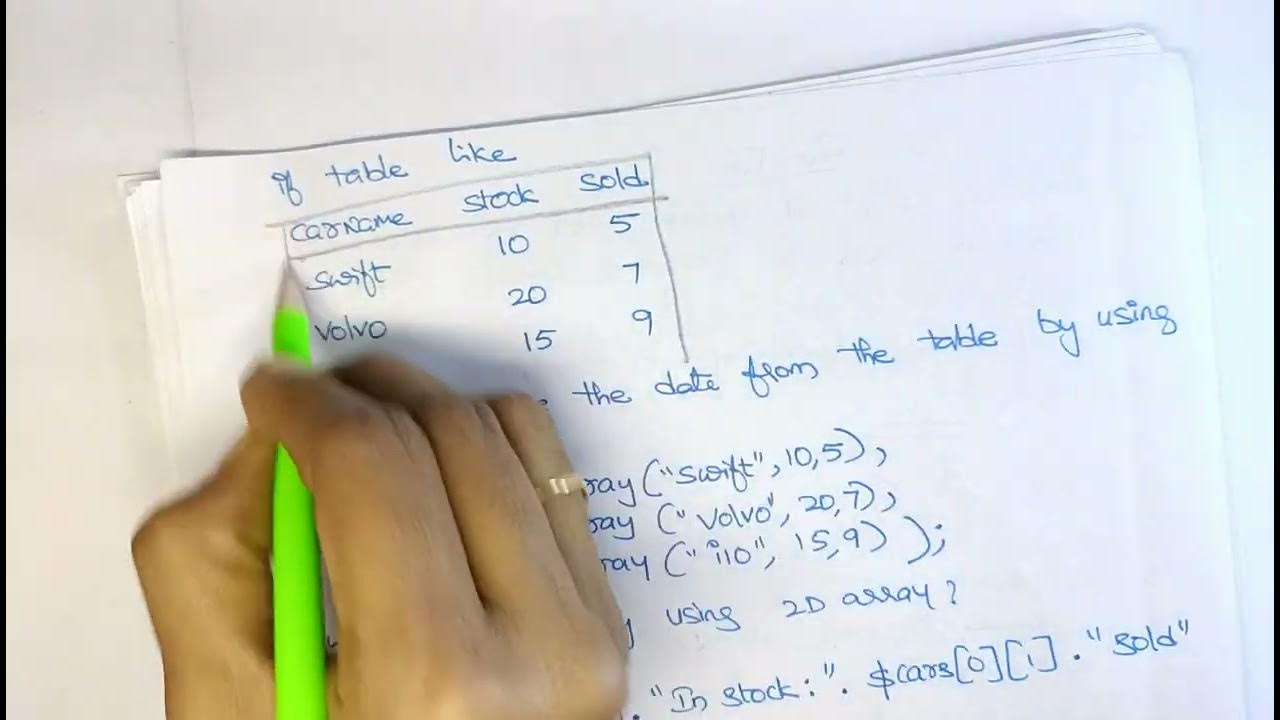 if table like
carname stock sold
swift 10 5
volvo 20 7
15 9
the date from the table by using
ray ("swift", 10,5),
ray ("volvo", 20,7),
ray ("i10", 15,9) );
using 2D array?
. "In stock:". $cars[0][1] . "sold"